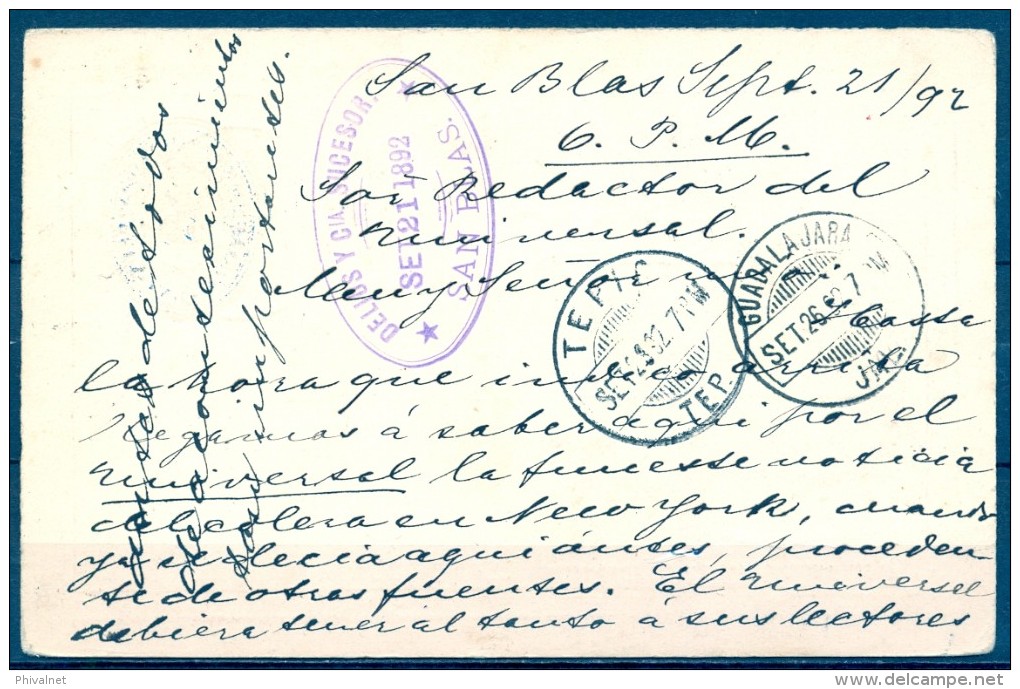 San Blas Sept. 21/92
6. P. M.
Sor Redactor del
Universal.
Muy Señor m
Hasta
la hora que indico arriba
llegamos á saber aqui por el
Universal la funesta noticia
del colera en New York, cuando
ya se decia aqui ántes, proceden
te de otras fuentes. El Universal
debiera tener al tanto á sus lectores
de todos
de acontecimientos
tan importantes.
DELIUS Y CIA. SUCESOR.
SET 21 1892
SAN BLAS.
TEPIC
SET.23.92.7PM
TEP.
GUADALAJARA
SET.26.92.7 PM
JAL.
Phivalnet
delcampe.net